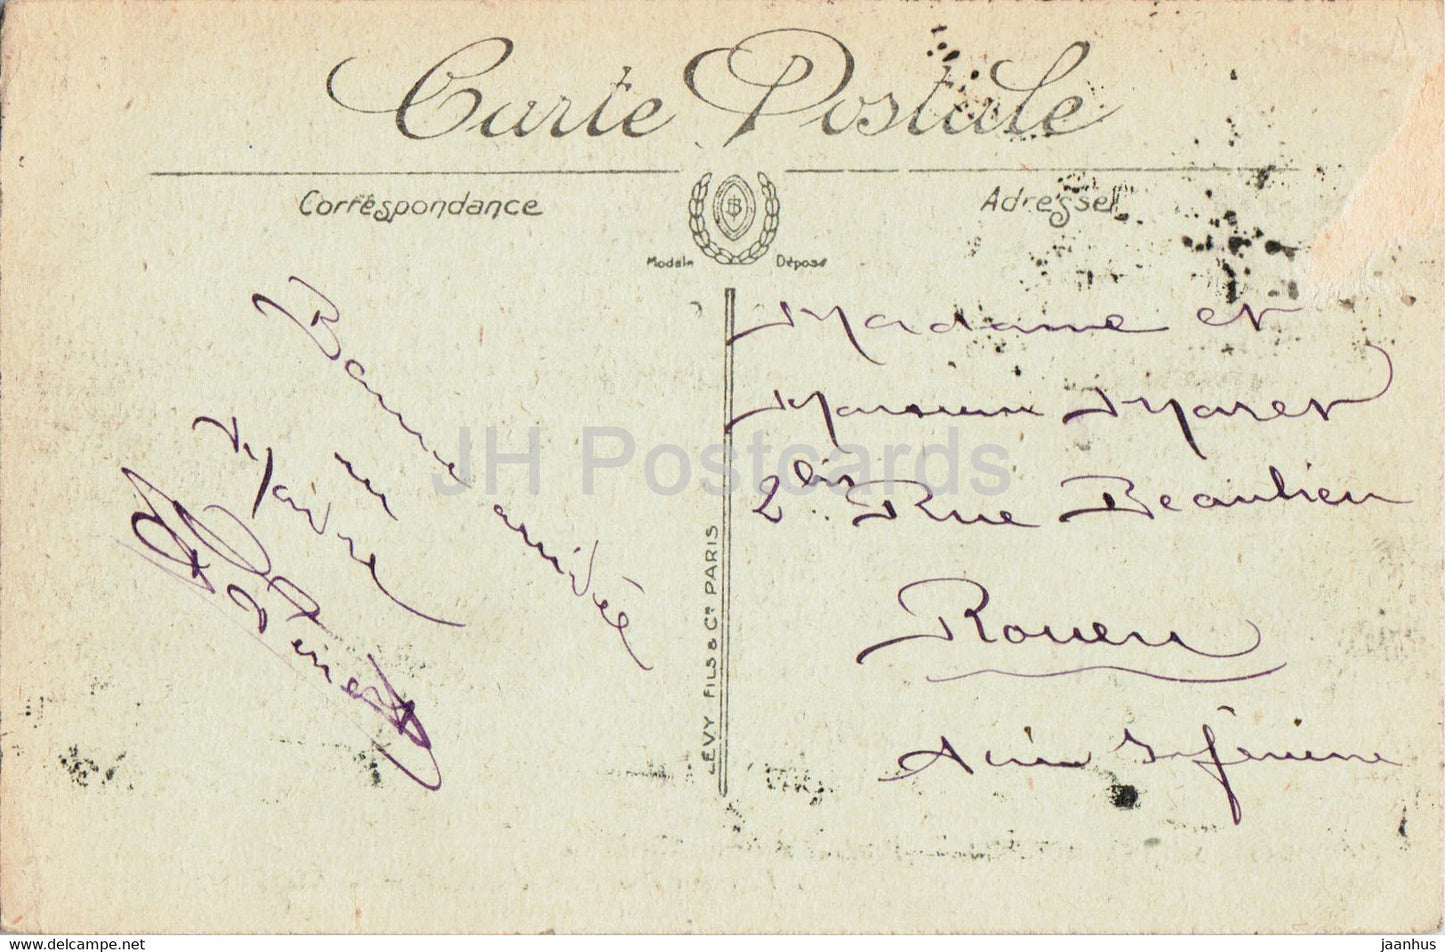 Carte Postale
Correspondance
Adresse
Modèle Déposé
Bonne année
LEVY FILS & Cie PARIS
Madame et
Monsieur Maret
2bis Rue Beaulieu
Rouen
Seine Inférieure
JH Postcards
www.delcampe.net
jaanhus